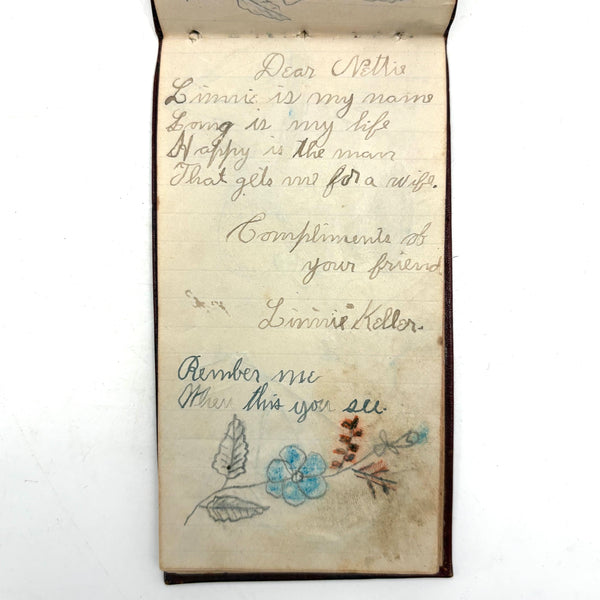 Dear Nettie
Linnie is my name
Long is my life
Happy is the man
That gets me for a wife.
Compliments of
your friend
Linnie Keller.
Rember me
When this you see.